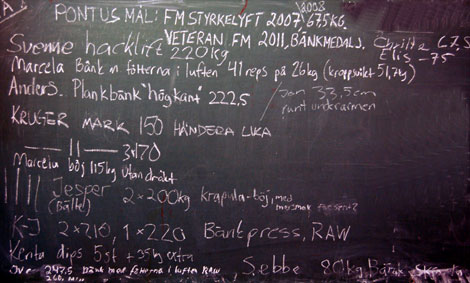 PONTUS MÅL: FM STYRKELYFT 2007/ 675 KG. 2008
VETERAN FM 2011, BÄNKMEDALJ.
Svenne hacklift 220kg
Marcela Bänk m fötterna i luften 41 reps på 26kg (kroppsvikt 51,7kg)
Anders. Plankbänk "högkant" 222,5
Jan 33,5cm
runt underarmen
KRUGER MARK 150 HÄNDERA LIKA
—— 11 —— 3x170
Marcela böj 115kg utan dräkt
Jesper 2x200kg böj, med
(Bälte)
K-J 2x210, 1x220 Bänkpress, RAW
Kenta dips 5st + 35kg extra
Ove 247,5 Bänk med fötterna i luften RAW
Sebbe 80kg Bänk